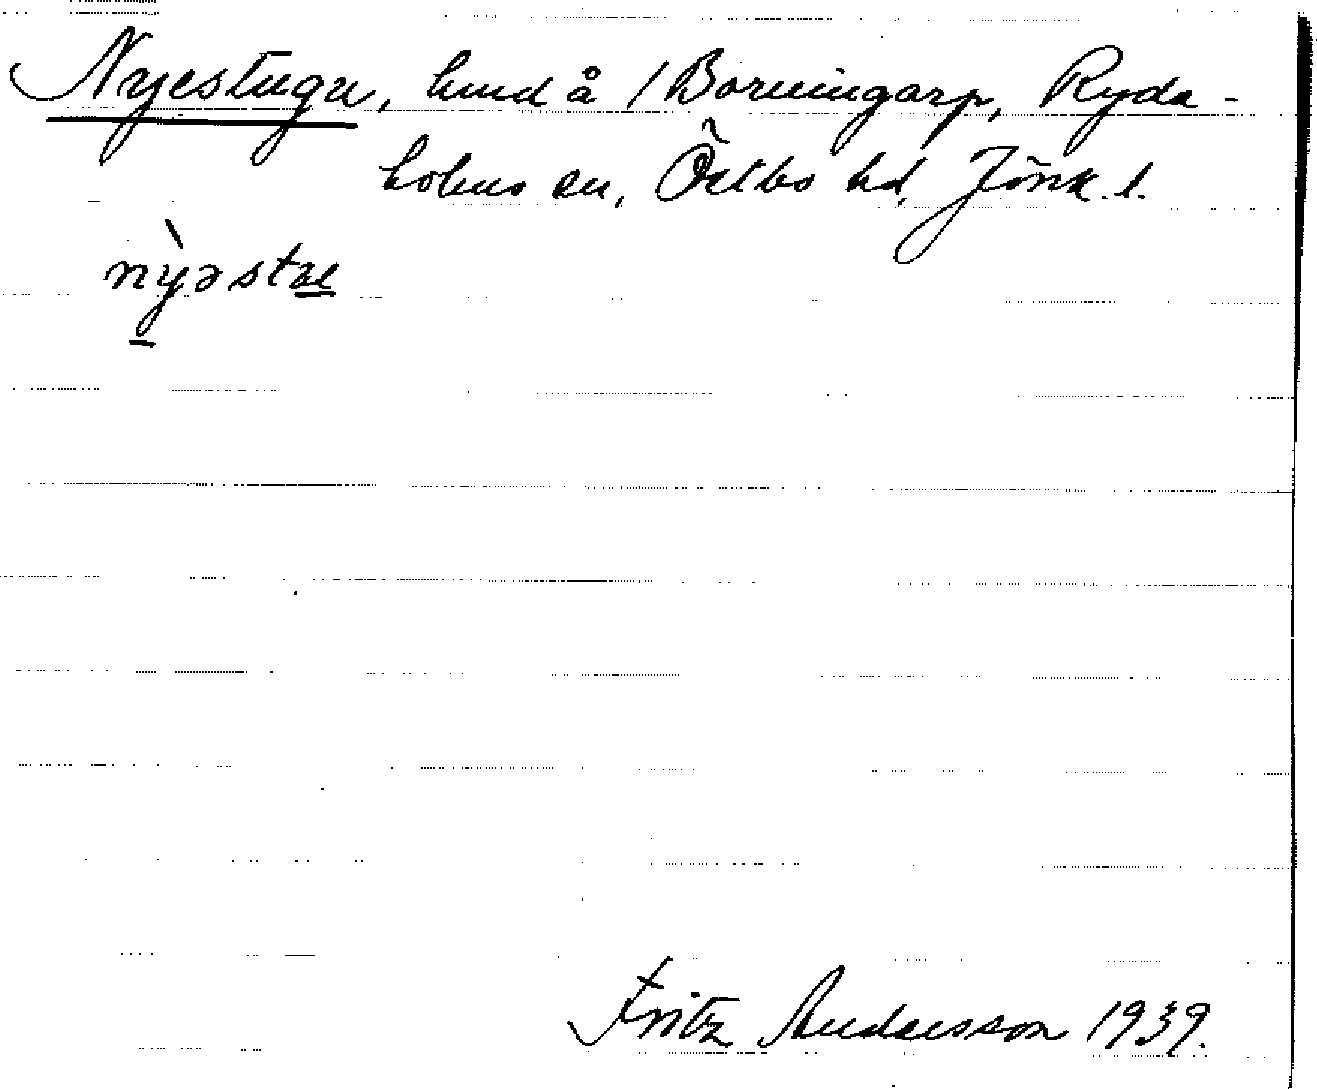 Nyestuga, hmd å /Borningarp, Ryda-
holms sn, Östbo hd, Jönk. l.
Fritz Andersson 1939.